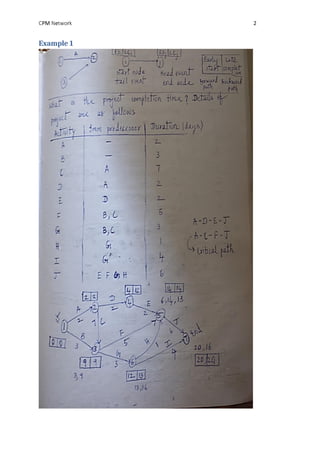 CPM Network 2
Example 1
A
start node
tail event
Head event
end node
Early
start
forward
path
backward
path
What is the project completion time? Details of
project are as follows
Activity Imm predecessor Duration (days)
A — 2
B — 3
C A 7
D A 2
E D 2
F B, C 5
G B, C 3
H G 1
I G 4
J E F G H 6
A-D-E-J
A-C-F-J
Critical path
2 2
D
E
6, 14, 13
14 14
A
2
2
2
C
7
B
3
F
5
J
I
4
H
1
G
3
0 0
9 9
3, 9
12
13, 16
20, 16
20 20